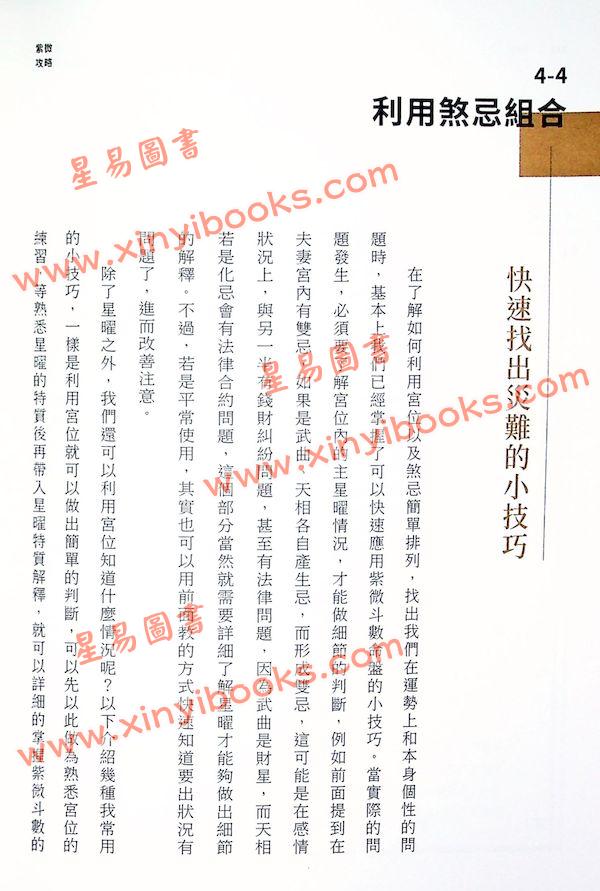 紫微
攻略
4-4
利用煞忌組合
快速找出災難的小技巧
在了解如何利用宮位以及煞忌簡單排列，找出我們在運勢上和本身個性的問
題時，基本上我們已經掌握了可以快速應用紫微斗數命盤的小技巧。當實際的問
題發生，必須要了解宮位內的主星曜情況，才能做細節的判斷，例如前面提到在
夫妻宮內有雙忌，如果是武曲、天相各自產生忌，而形成雙忌，這可能是在感情
狀況上，與另一半有錢財糾紛問題，甚至有法律問題，因為武曲是財星，而天相
若是化忌會有法律合約問題，這個部分當然就需要詳細了解星曜才能夠做出細節
的解釋。不過，若是平常使用，其實也可以用前面教的方式快速知道要出狀況有
問題了，進而改善注意。
除了星曜之外，我們還可以利用宮位知道什麼情況呢？以下介紹幾種我常用
的小技巧，一樣是利用宮位就可以做出簡單的判斷，可以先以此做為熟悉宮位的
練習，等熟悉星曜的特質後再帶入星曜特質解釋，就可以詳細的掌握紫微斗數的
星易圖書
www.xinyibooks.com
星易圖書
www.xinyibooks.com
星易圖書
www.xinyibooks.com